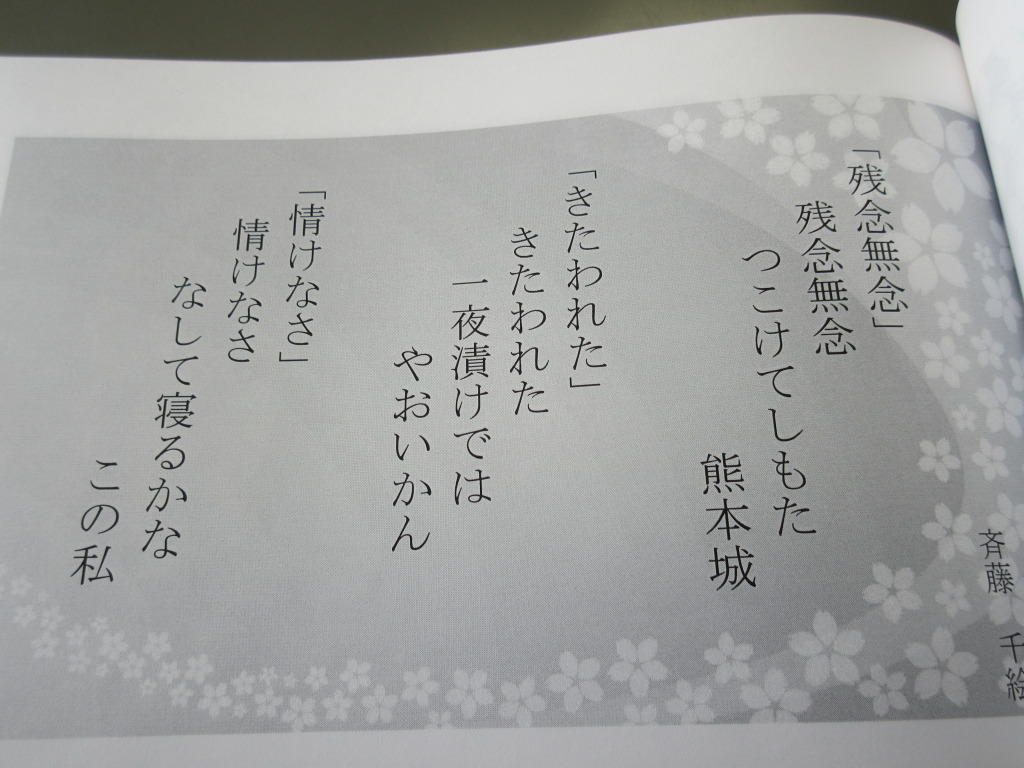 斉藤 千絵
「残念無念」
残念無念
つこけてしもた
熊本城
「きたわれた」
きたわれた
一夜漬けでは
やおいかん
「情けなさ」
情けなさ
なして寝るかな
この私